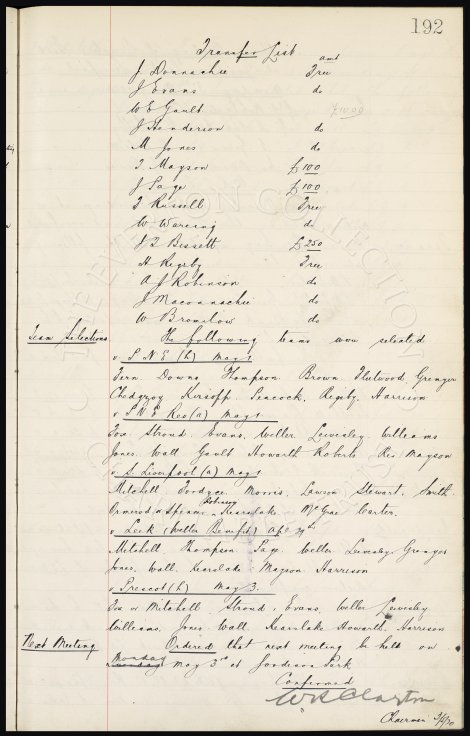 192
Transfer List
amt
J. Donnachie Free
J Evans do
W E Gault £1000
J Henderson do
M Jones do
T. Mayson £100
J Page £100
T Russell Free
W Wareing do
J. T. Bissett £250
H Rigsby Free
A J Robinson do
J Maconnachie do
W Bromilow do
Team Selections The following teams were selected
v S.N.E (h) May 1
Fern. Downs Thompson. Brown. Fleetwood. Grenyer
Chedgzoy Kirsopp. Peacock. Rigsby. Harrison
v S.N.E Res (a) May 1
Fox. Stroud. Evans. Weller Lewesley. Williams
Jones. Wall Gault Howarth Roberts Res Mayson
v S. Liverpool (a) May 1
Mitchell Fordyce Morris. Lawson Stewart. Smith.
Ormerod Spenser Robinson Kearslake McGrae Carter.
v Leek (Weller Benefit) Apl 29th
Mitchell. Thompson Page. Weller. Lewesley Grenyer
Jones. Wall. Kearslake Mayson. Harrison
v Prescot (h) May 3.
Fox or Mitchell. Stroud. Evans. Weller Lewesley
Williams. Jones. Wall Kearslake Howarth. Harrison
Next Meeting Ordered that next meeting be held on
Monday May 3rd at Goodison Park
Confirmed
W R Clayton
Chairman 3/5/20
THE EVERTON COLLECTION